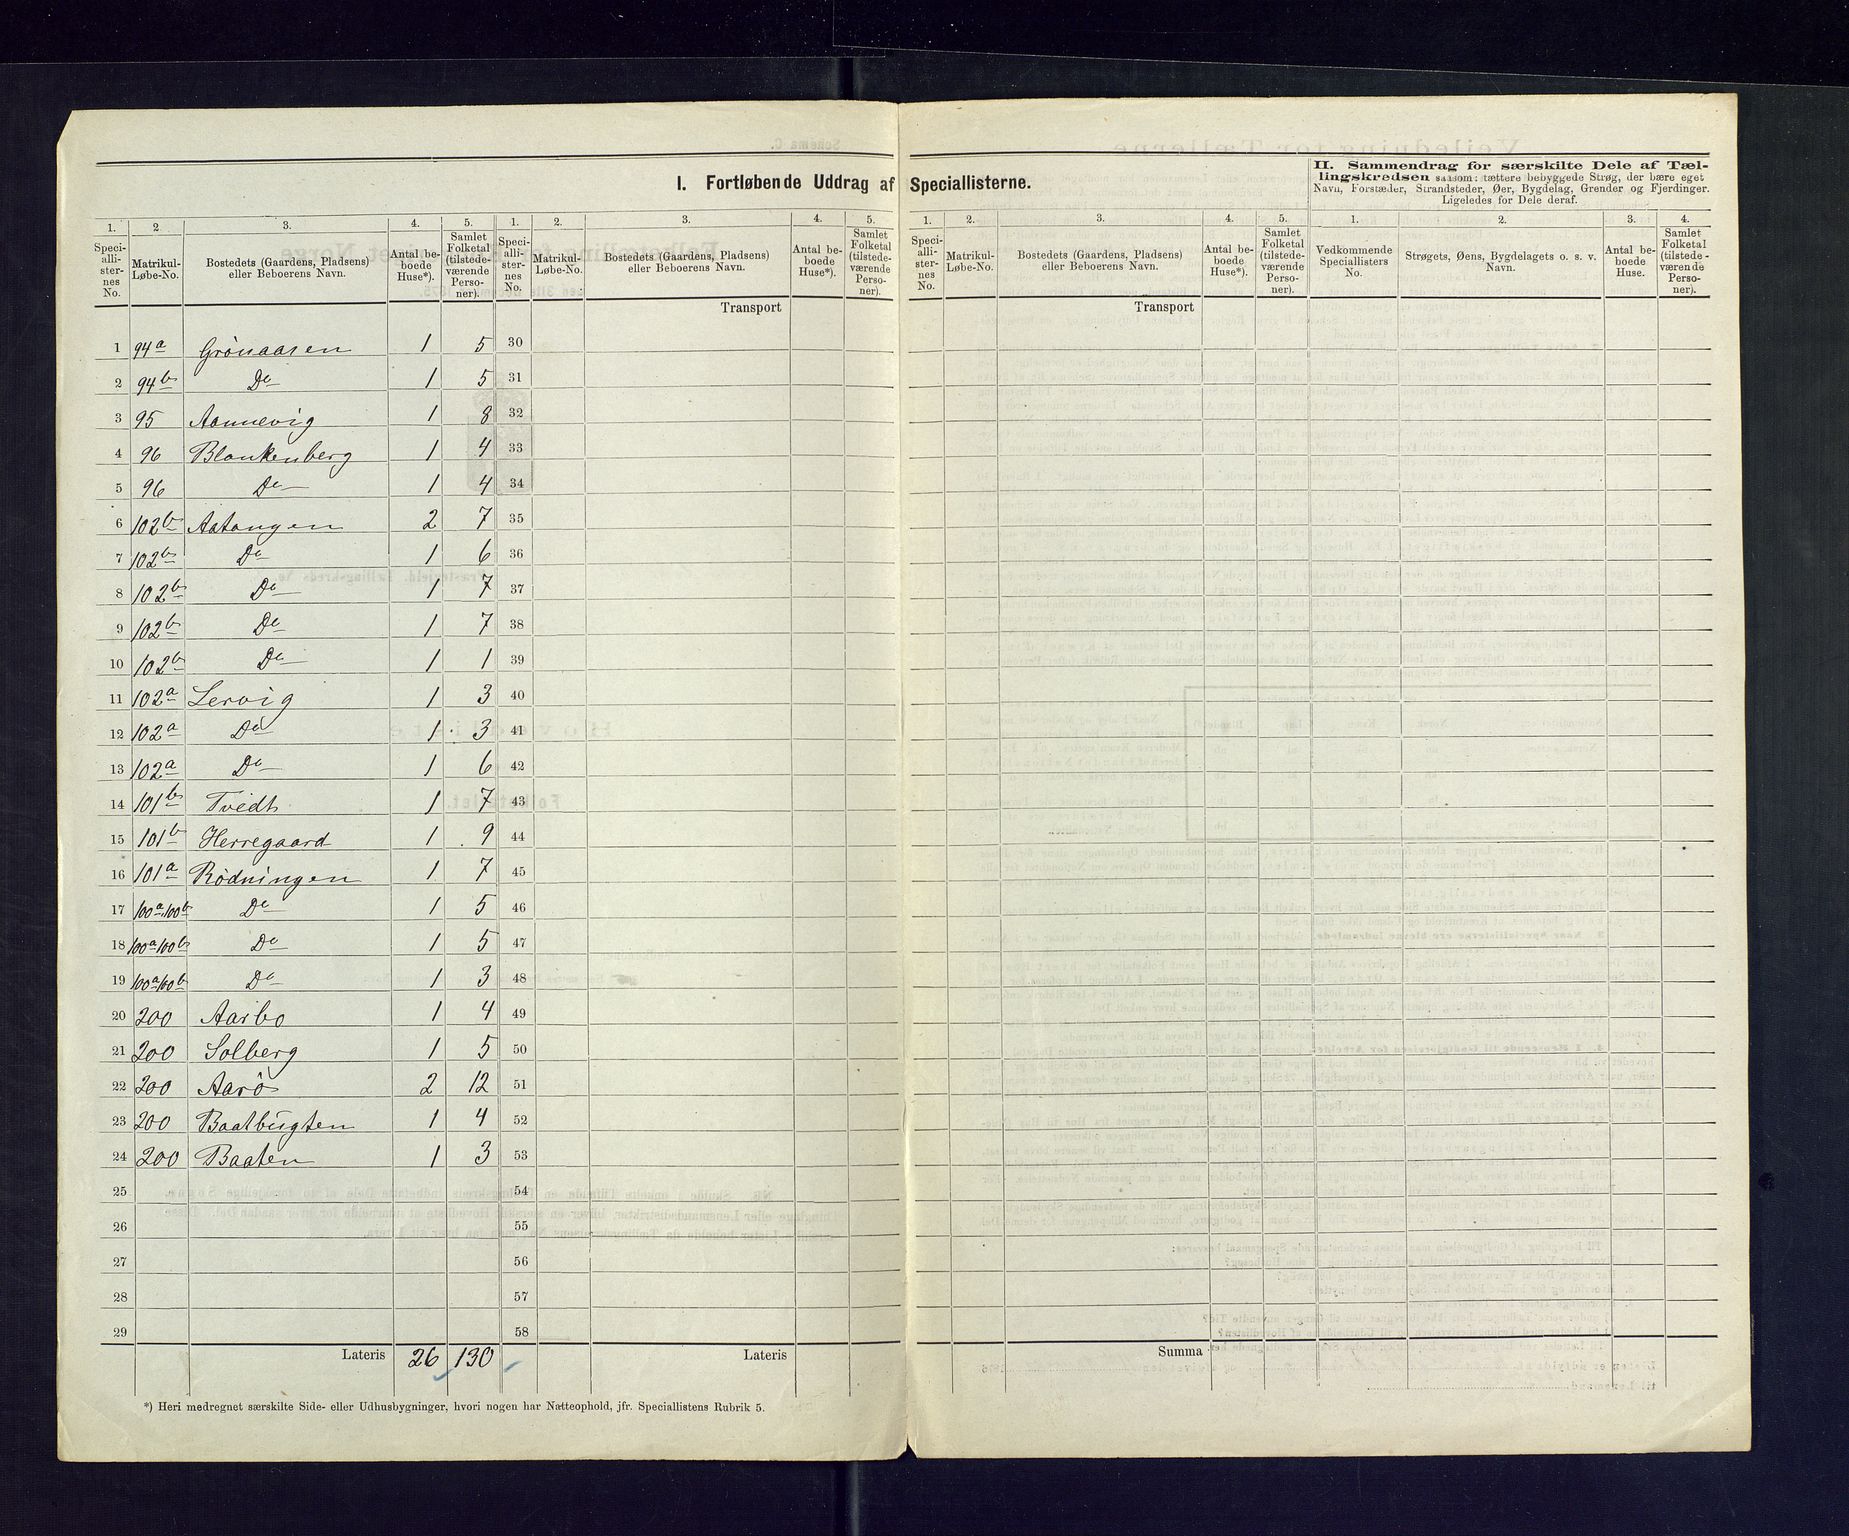 I. Fortløbende Uddrag af Speciallisterne.
II. Sammendrag for særskilte Dele af Tæl-
lingskredsen saasom: tættere bebyggede Strøg, der bære eget
Navn, Forstæder, Strandsteder, Øer, Bygdelag, Grender og Fjerdinger.
Ligeledes for Dele deraf.
1. 2. 3. 4. 5. 1. 2. 3. 4. 5. 1. 2. 3. 4. 5. 1. 2. 3. 4.
Speci-alli-ster-nes No. Matrikul-Løbe-No. Bostedets (Gaardens, Pladsens) eller Beboerens Navn. Antal be-boede Huse*). Samlet Folketal (tilstede-værende Perso-ner).
Speci-alli-ster-nes No. Matrikul-Løbe-No. Bostedets (Gaardens, Pladsens) eller Beboerens Navn. Antal be-boede Huse*). Samlet Folketal (tilstede-værende Perso-ner).
Speci-alli-ster-nes No. Matrikul-Løbe-No. Bostedets (Gaardens, Pladsens) eller Beboerens Navn. Antal be-boede Huse*). Samlet Folketal (tilstede-værende Perso-ner).
Vedkommende Speciallisters No. Strøgets, Øens, Bygdelagets o. s. v. Navn. Antal be-boede Huse. Samlet Folketal (tilstede-værende Perso-ner).
Transport Transport
1 94a Grönaasen 1 5 30
2 94b Do 1 5 31
3 95 Aannevig 1 8 32
4 96 Blankenberg 1 4 33
5 96 Do 1 4 34
6 102b Aatangen 2 7 35
7 102b Do 1 6 36
8 102b Do 1 7 37
9 102b Do 1 7 38
10 102b Do 1 1 39
11 102a Lervig 1 3 40
12 102a Do 1 3 41
13 102a Do 1 6 42
14 101b Tvedt 1 7 43
15 101b Herregaard 1 9 44
16 101a Rödningen 1 7 45
17 100a,100b Do 1 5 46
18 100a100b Do 1 5 47
19 100a100b Do 1 3 48
20 200 Aarbo 1 4 49
21 200 Solberg 1 5 50
22 200 Aarö 2 12 51
23 200 Baatbugten 1 4 52
24 200 Baaten 1 3 53
25 54
26 55
27 56
28 57
29 58
Lateris 26 130 Lateris Summa
*) Heri medregnet særskilte Side- eller Udhusbygninger, hvori nogen har Natteophold, jfr. Speciallistens Rubrik 5.